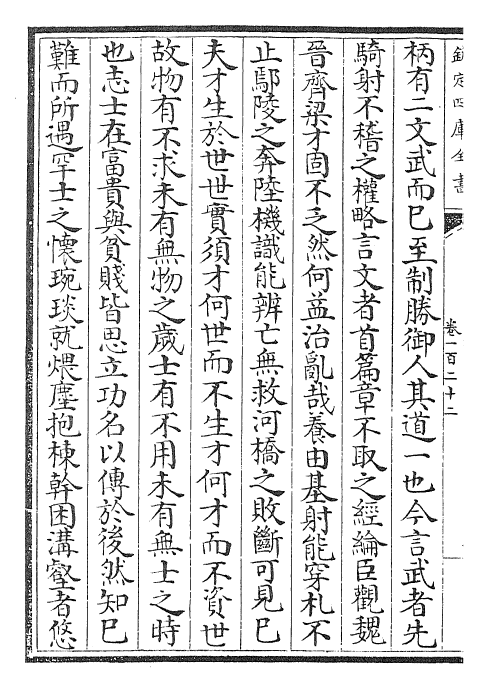 欽定四庫全書
卷一百二十二
柄有二文武而巳至制勝御人其道一也今言武者先
騎射不稽之權略言文者首篇章不取之經綸臣觀魏
晉齊梁才固不乏然何益治亂哉養由基射能穿札不
止鄢陵之奔陸機識能辨亡無救河橋之敗斷可見巳
夫才生於世世實須才何世而不生才何才而不資世
故物有不求未有無物之歲士有不用未有無士之時
也志士在富貴與貧賤皆思立功名以傳於後然知巳
難而所遇罕士之懷琬琰就煨塵抱棟幹困溝壑者悠